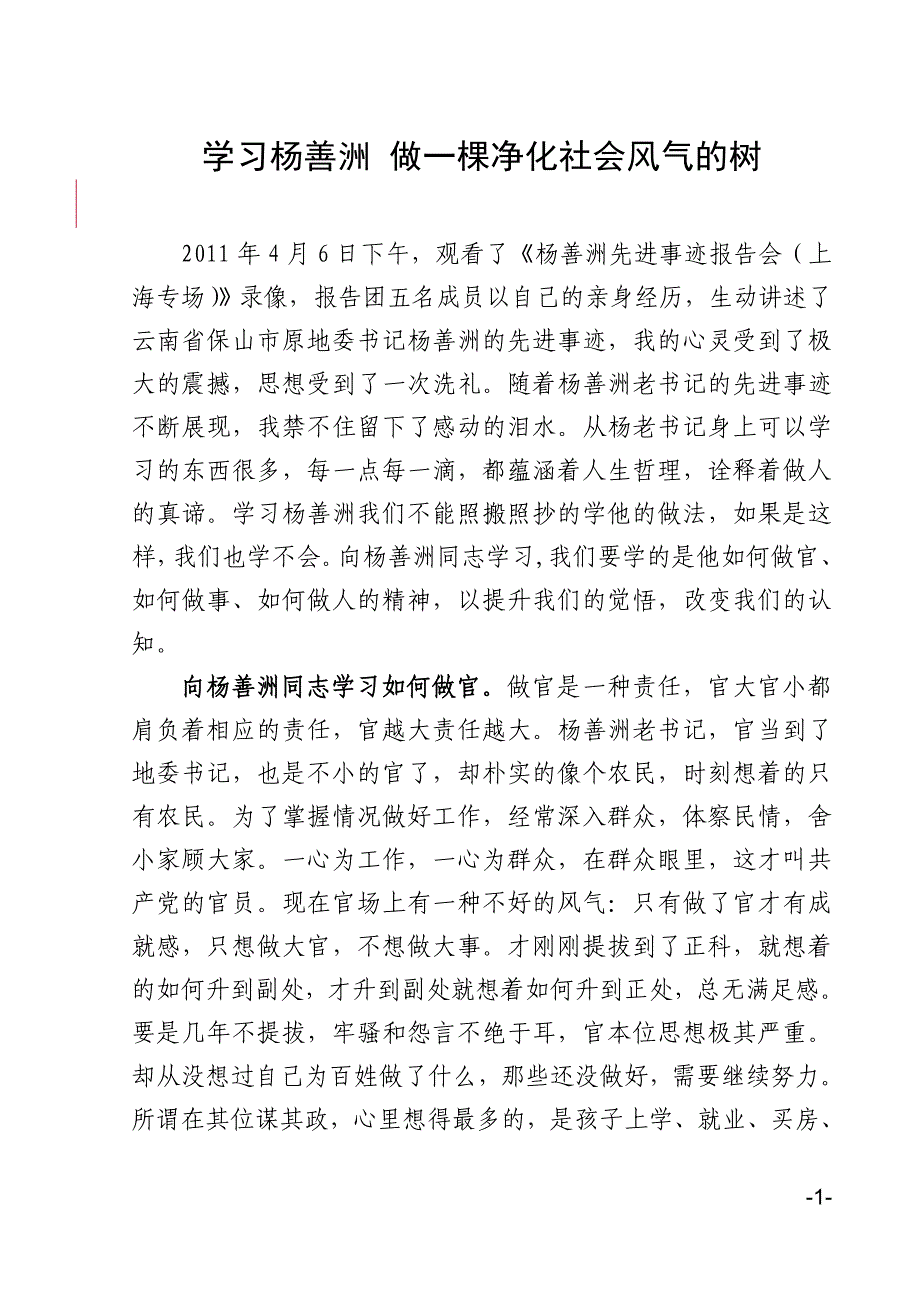 学习杨善洲 做一棵净化社会风气的树
2011年4月6日下午，观看了《杨善洲先进事迹报告会（上
海专场）》录像，报告团五名成员以自己的亲身经历，生动讲述了
云南省保山市原地委书记杨善洲的先进事迹，我的心灵受到了极
大的震撼，思想受到了一次洗礼。随着杨善洲老书记的先进事迹
不断展现，我禁不住留下了感动的泪水。从杨老书记身上可以学
习的东西很多，每一点每一滴，都蕴涵着人生哲理，诠释着做人
的真谛。学习杨善洲我们不能照搬照抄的学他的做法，如果是这
样，我们也学不会。向杨善洲同志学习，我们要学的是他如何做官、
如何做事、如何做人的精神，以提升我们的觉悟，改变我们的认
知。
向杨善洲同志学习如何做官。做官是一种责任，官大官小都
肩负着相应的责任，官越大责任越大。杨善洲老书记，官当到了
地委书记，也是不小的官了，却朴实的像个农民，时刻想着的只
有农民。为了掌握情况做好工作，经常深入群众，体察民情，舍
小家顾大家。一心为工作，一心为群众，在群众眼里，这才叫共
产党的官员。现在官场上有一种不好的风气：只有做了官才有成
就感，只想做大官，不想做大事。才刚刚提拔到了正科，就想着
的如何升到副处，才升到副处就想着如何升到正处，总无满足感。
要是几年不提拔，牢骚和怨言不绝于耳，官本位思想极其严重。
却从没想过自己为百姓做了什么，那些还没做好，需要继续努力。
所谓在其位谋其政，心里想得最多的，是孩子上学、就业、买房、
-1-